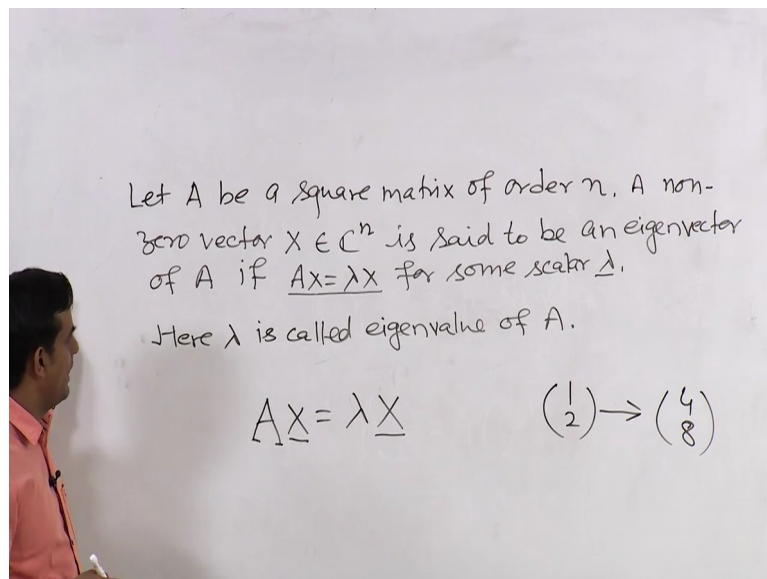 Let A be a square matrix of order n. A non-
zero vector X ∈ ℂⁿ is said to be an eigenvector
of A if AX=λX for some scalar λ.
Here λ is called eigenvalue of A.
AX = λX (1 2) → (4 8)